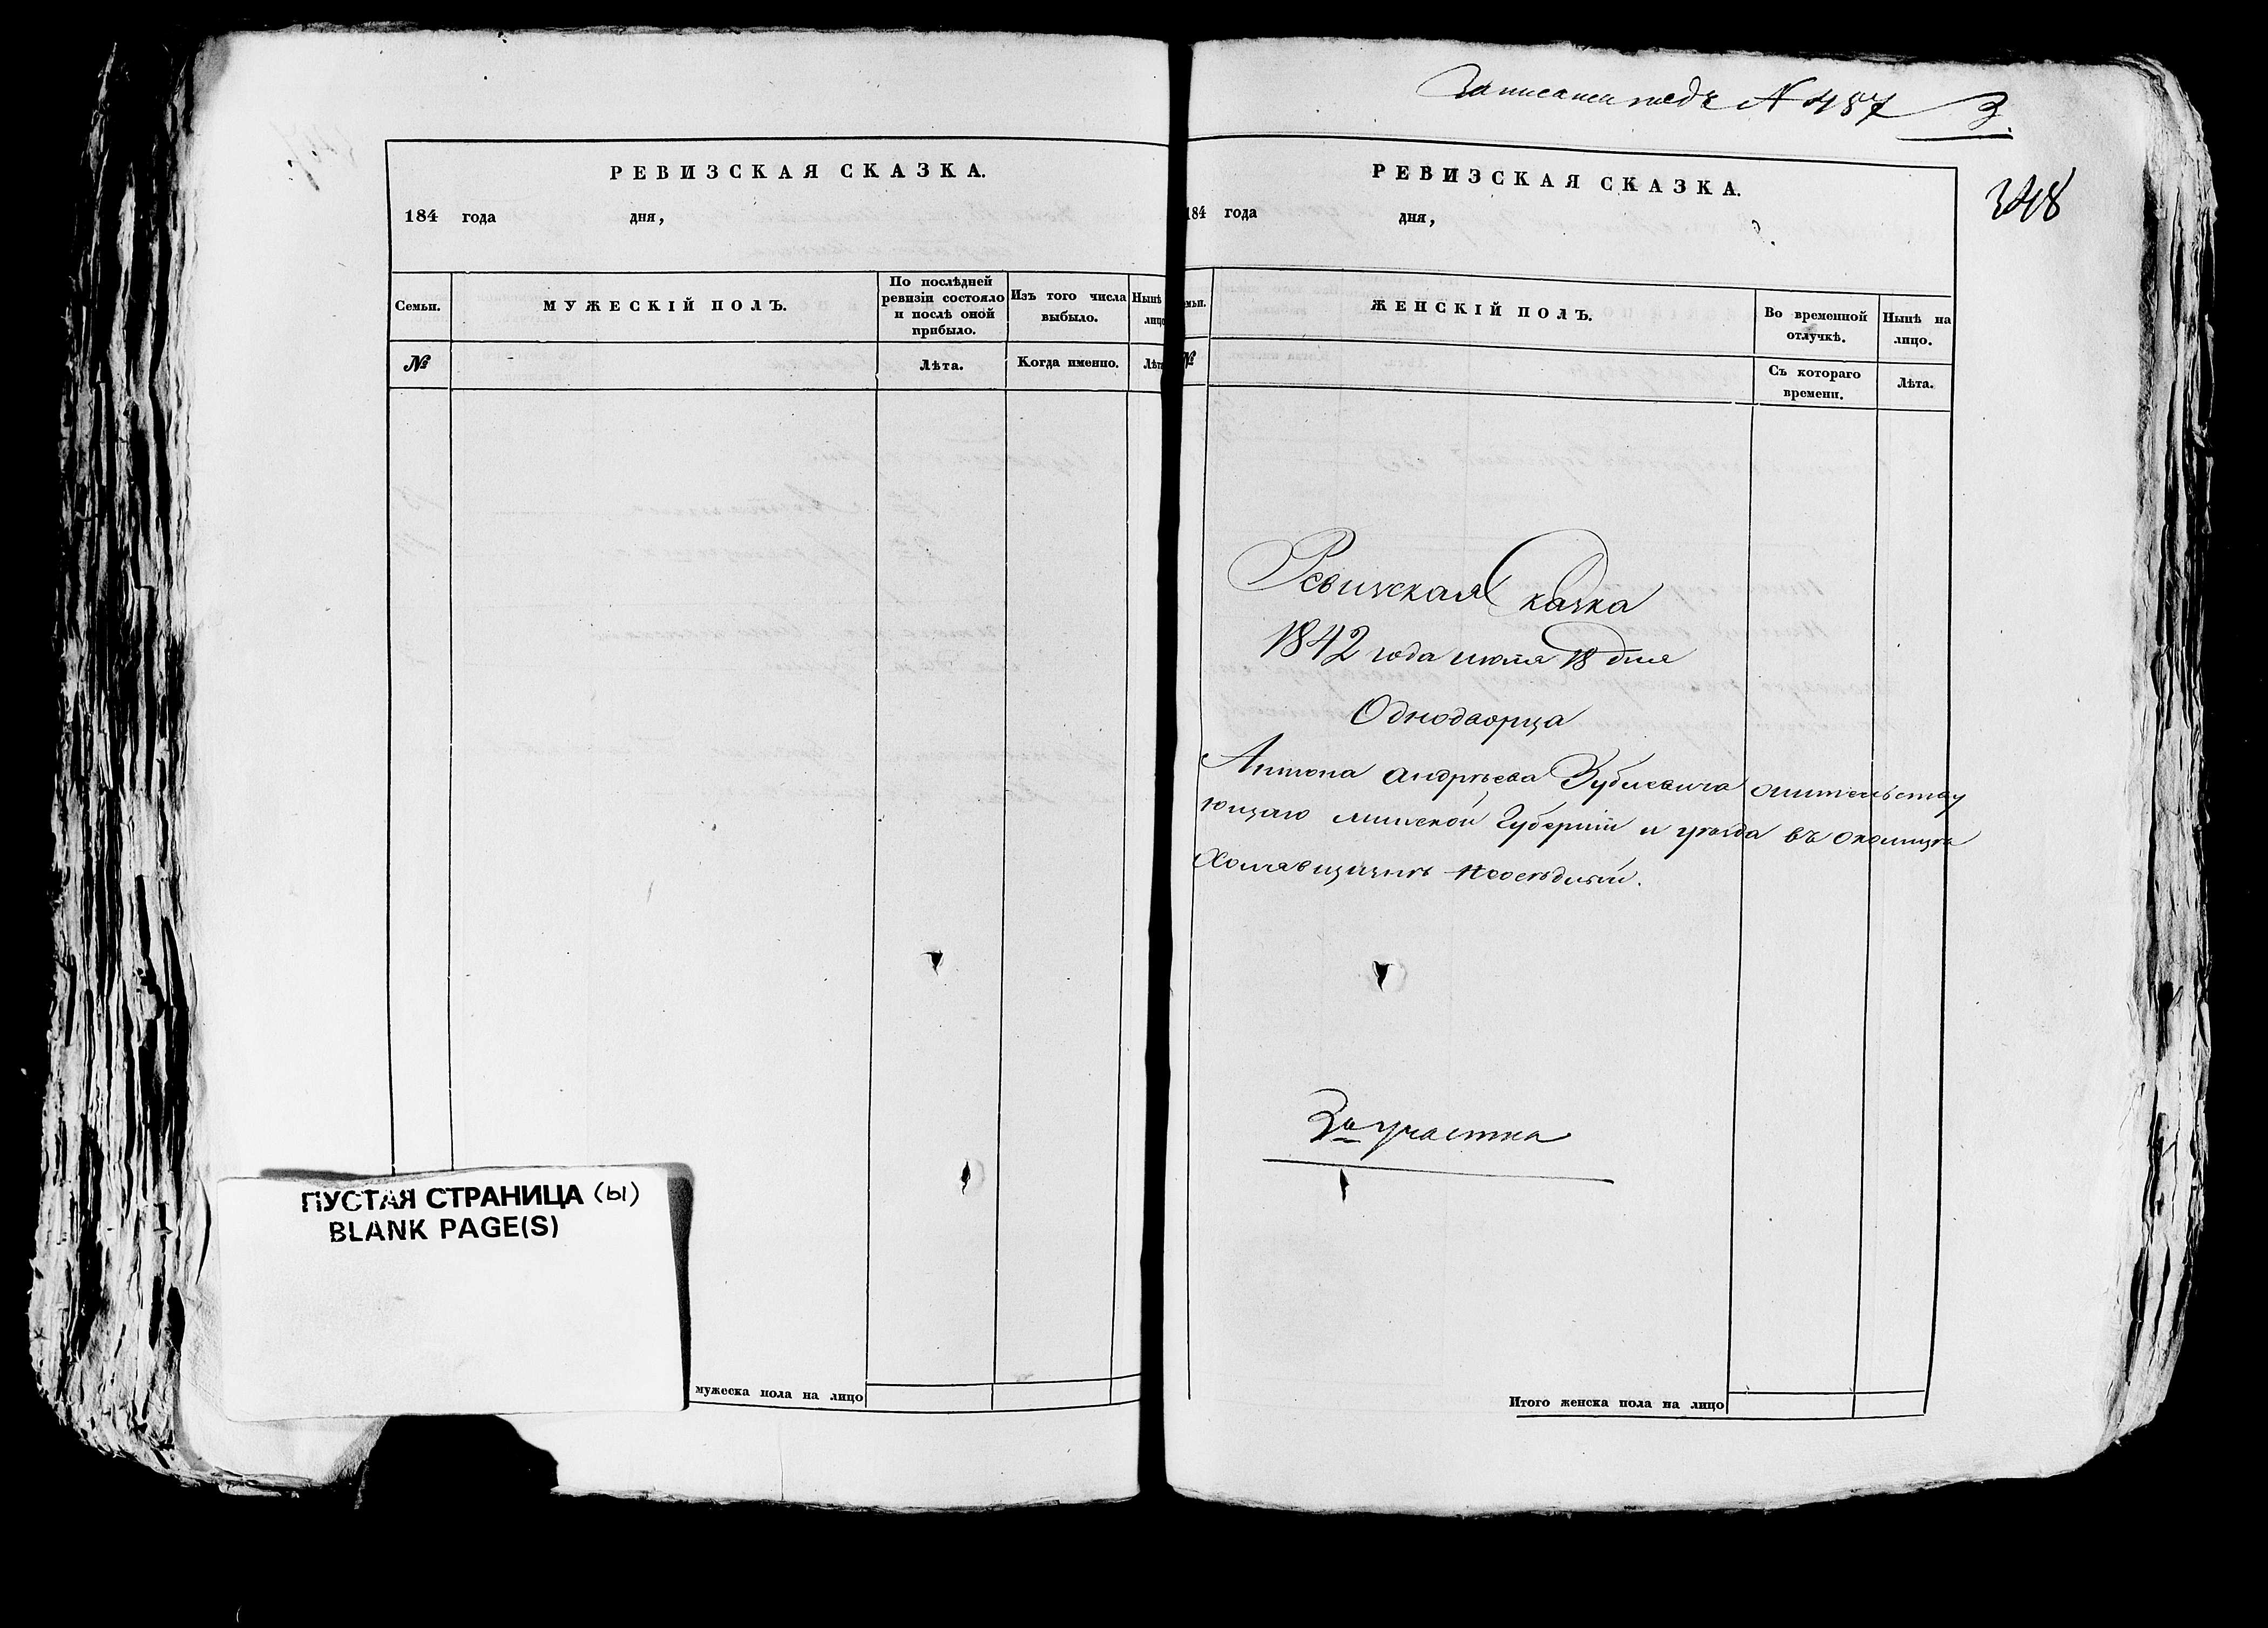 РЕВИЗСКАЯ СКАЗКА.
184 года дня,
Семьи.
МУЖЕСКІЙ ПОЛЪ.
По послѣдней
ревизіи состояло
и послѣ оной
прибыло.
Изъ того числа
выбыло.
Нынѣ
лицо
№
Лѣта.
Когда именно.
Лѣт
ПУСТАЯ СТРАНИЦА (ы)
BLANK PAGE(S)
мужеска пола на лицо
Записана подъ N 487 3.
348
РЕВИЗСКАЯ СКАЗКА.
184 года дня,
мьи.
ЖЕНСКІЙ ПОЛЪ.
Во временной
отлучкѣ.
Нынѣ на
лицо.
№
Съ котораго
времени.
Лѣта.
Ревизская Сказка
1842 года июля 18 дня
Однодворца
Антона Андрѣева
ющаго минской Губерніи и уѣзда въ околицѣ
3го участка
Итого женска пола на лицо